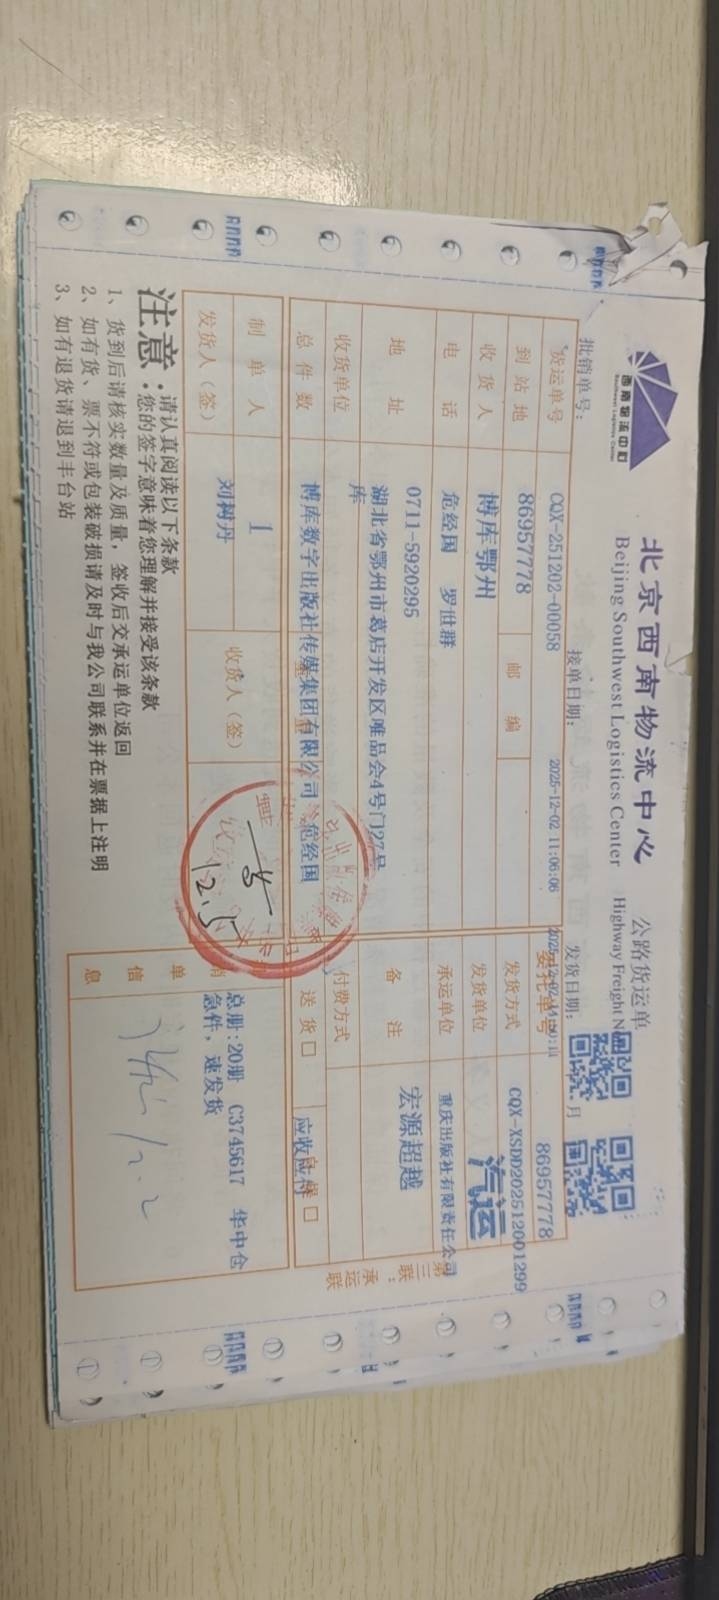 西南物流中心
Southwest Logistics Center
北京西南物流中心 公路货运单
Beijing Southwest Logistics Center Highway Freight N
批销单号: 接单日期: 2025-12-02 11:06:06 发货日期: 月
货运单号 CQX-251202-00058 委托单号 86957778
到站地 86957778 邮编 发货方式 CQX-XSDD202512001299
收货人 博库鄂州 发货单位 汽运
电话 危经国 罗世群 承运单位 重庆出版社有限责任公司
地址 0711-5920295 备注 宏源超越
湖北省鄂州市葛店开发区唯品会4号门27号
库
收货单位 付费方式
总件数 博库数字出版社传媒集团有限公司 危经国 送货□
制单人 1
发货人(签) 刘树丹 收货人(签)
12.5
销单信息 总册:20册 C3745617 华中仓
急件,速发货
12.2
第三联:承运联
注意:请认真阅读以下条款
您的签字意味着您理解并接受该条款
1、货到后请核实数量及质量,签收后交承运单位返回
2、如有货、票不符或包装破损请及时与我公司联系并在票据上注明
3、如有退货请退到丰台站